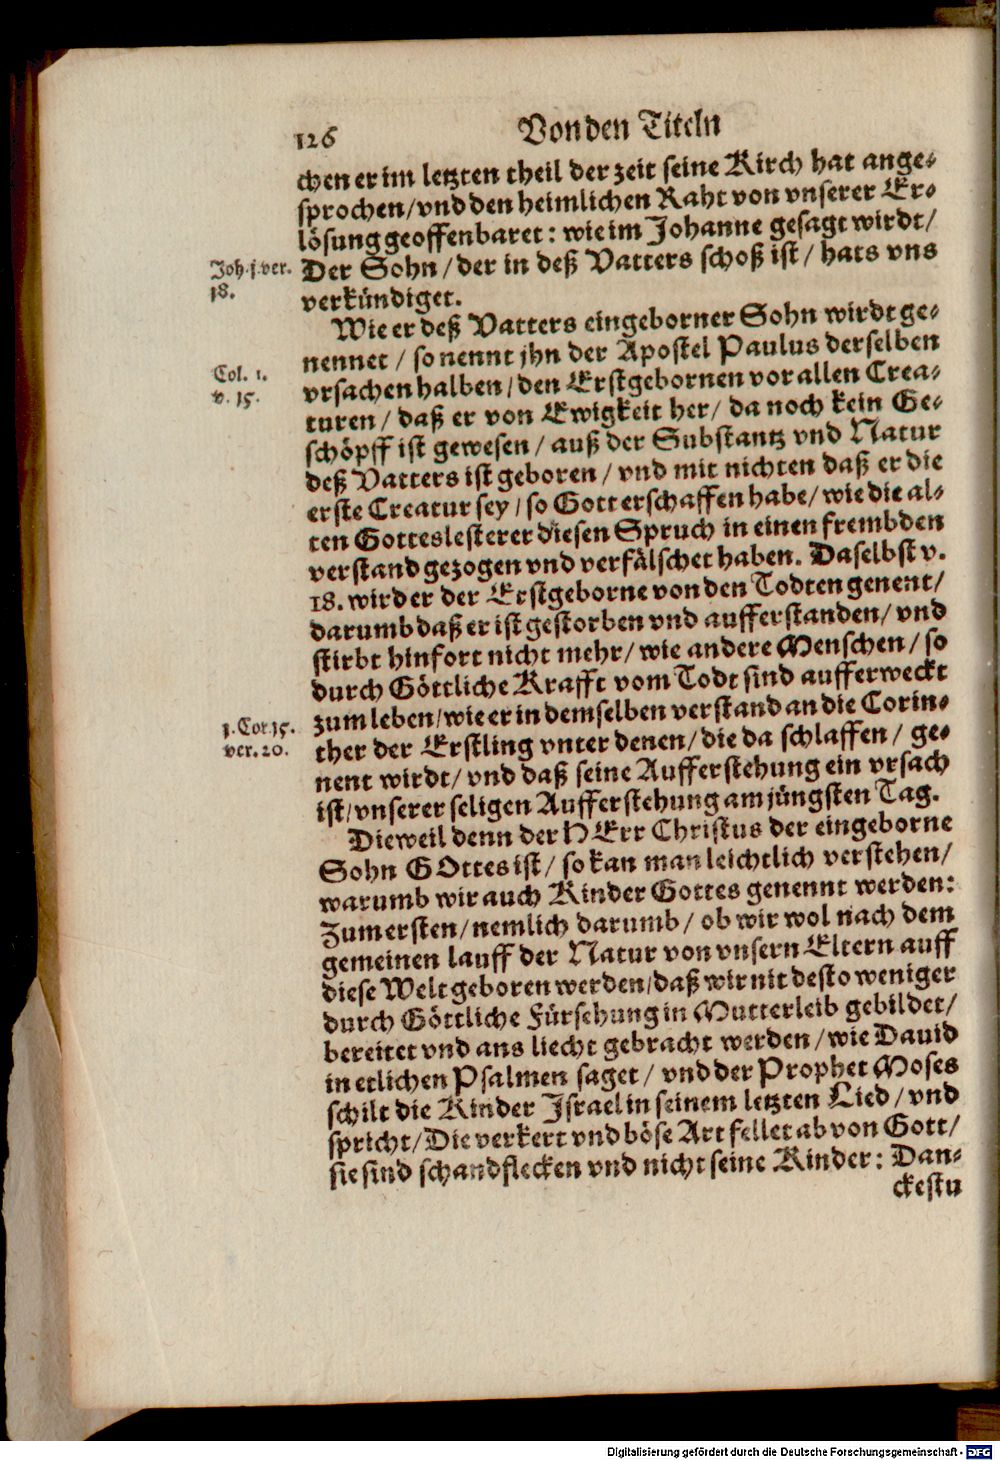 126 Von den Titeln
chen er im letzten theil der zeit seine Kirch hat ange⸗
sprochen/vnd den heimlichen Raht von vnserer Er⸗
lösung geoffenbaret: wie im Johanne gesagt wirdt/
Joh.j.ver.
18.
Der Sohn/der in deß Vatters schoß ist/hats vns
verkündiget.
Wie er deß Vatters eingeborner Sohn wirdt ge⸗
nennet/so nennt jhn der Apostel Paulus derselben
Col. 1.
v. 15.
vrsachen halben/den Erstgebornen vor allen Crea⸗
turen/daß er von Ewigkeit her/da noch kein Ge⸗
schöpff ist gewesen/auß der Substantz vnd Natur
deß Vatters ist geboren/vnd mit nichten daß er die
erste Creatur sey/so Gott erschaffen habe/wie die al⸗
ten Gotteslesterer diesen Spruch in einen frembden
verstand gezogen vnd verfälschet haben. Daselbst v.
18. wird er der Erstgeborne von den Todten genent/
darumb daß er ist gestorben vnd aufferstanden/vnd
stirbt hinfort nicht mehr/wie andere Menschen/so
durch Göttliche Krafft vom Todt sind aufferweckt
1.Cor.15.
ver.20.
zum leben/wie er in demselben verstand an die Corin⸗
ther der Erstling vnter denen/die da schlaffen/ge⸗
nent wirdt/vnd daß seine Aufferstehung ein vrsach
ist/vnserer seligen Aufferstehung am jüngsten Tag.
Dieweil denn der HErr Christus der eingeborne
Sohn GOttes ist/so kan man leichtlich verstehen/
warumb wir auch Kinder Gottes genennt werden:
Zum ersten/nemlich darumb/ob wir wol nach dem
gemeinen lauff der Natur von vnsern Eltern auff
diese Welt geboren werden/daß wir nit desto weniger
durch Göttliche Fürsehung in Mutterleib gebildet/
bereitet vnd ans liecht gebracht werden/wie Dauid
in etlichen Psalmen saget/vnd der Prophet Moses
schilt die Kinder Jsrael in seinem letzten Lied/vnd
spricht/Die verkert vnd böse Art fellet ab von Gott/
sie sind schandflecken vnd nicht seine Kinder: Dan⸗
ckestu
Digitalisierung gefördert durch die Deutsche Forschungsgemeinschaft - DFG